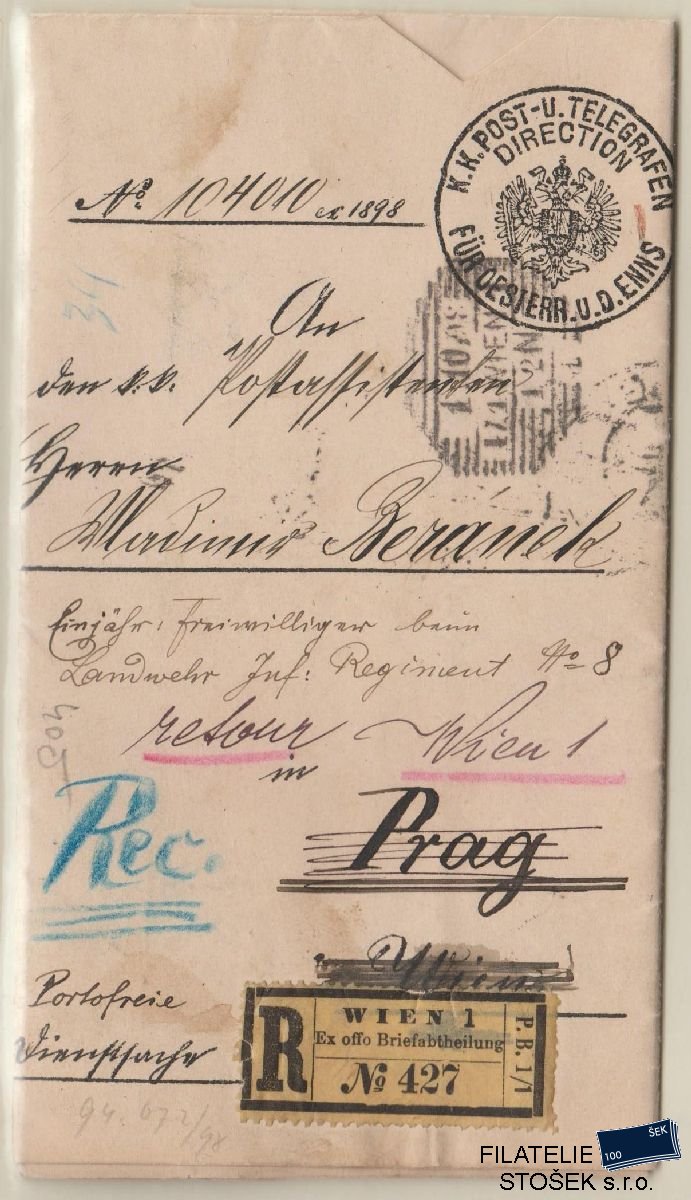 K.K. POST-U. TELEGRAFEN
DIRECTION
FÜR OESTERR. U. D. ENNS
No. 104010 ex 1898
34
An
den k.k. Postassistenten
Herrn
Wladimir Beranek
Einjähr: Freiwilliger beim
Landwehr Inf: Regiment No 8
retour Wien 1
in
Rec.
Prag
Wien
Portofreie
Dienstsache
R
WIEN 1
Ex offo Briefabtheilung
No 427
P.B. 1/1
FILATELIE
STOŠEK s.r.o.
100
ŠEK